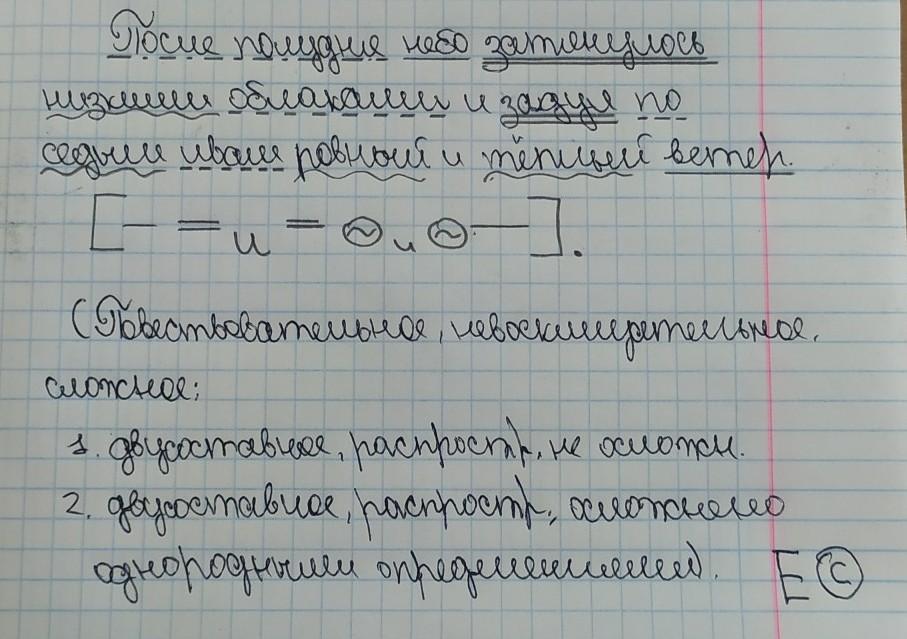 После полудня небо затянулось
низкими облаками и задул по
седым ивам ровный и тёплый ветер.
[— = и = и —].
(Повествовательное, невосклицательное,
сложное:
1. двусоставное, распростр, не осложн.
2. двусоставное, распростр, осложнено
однородными определениями).
Е С